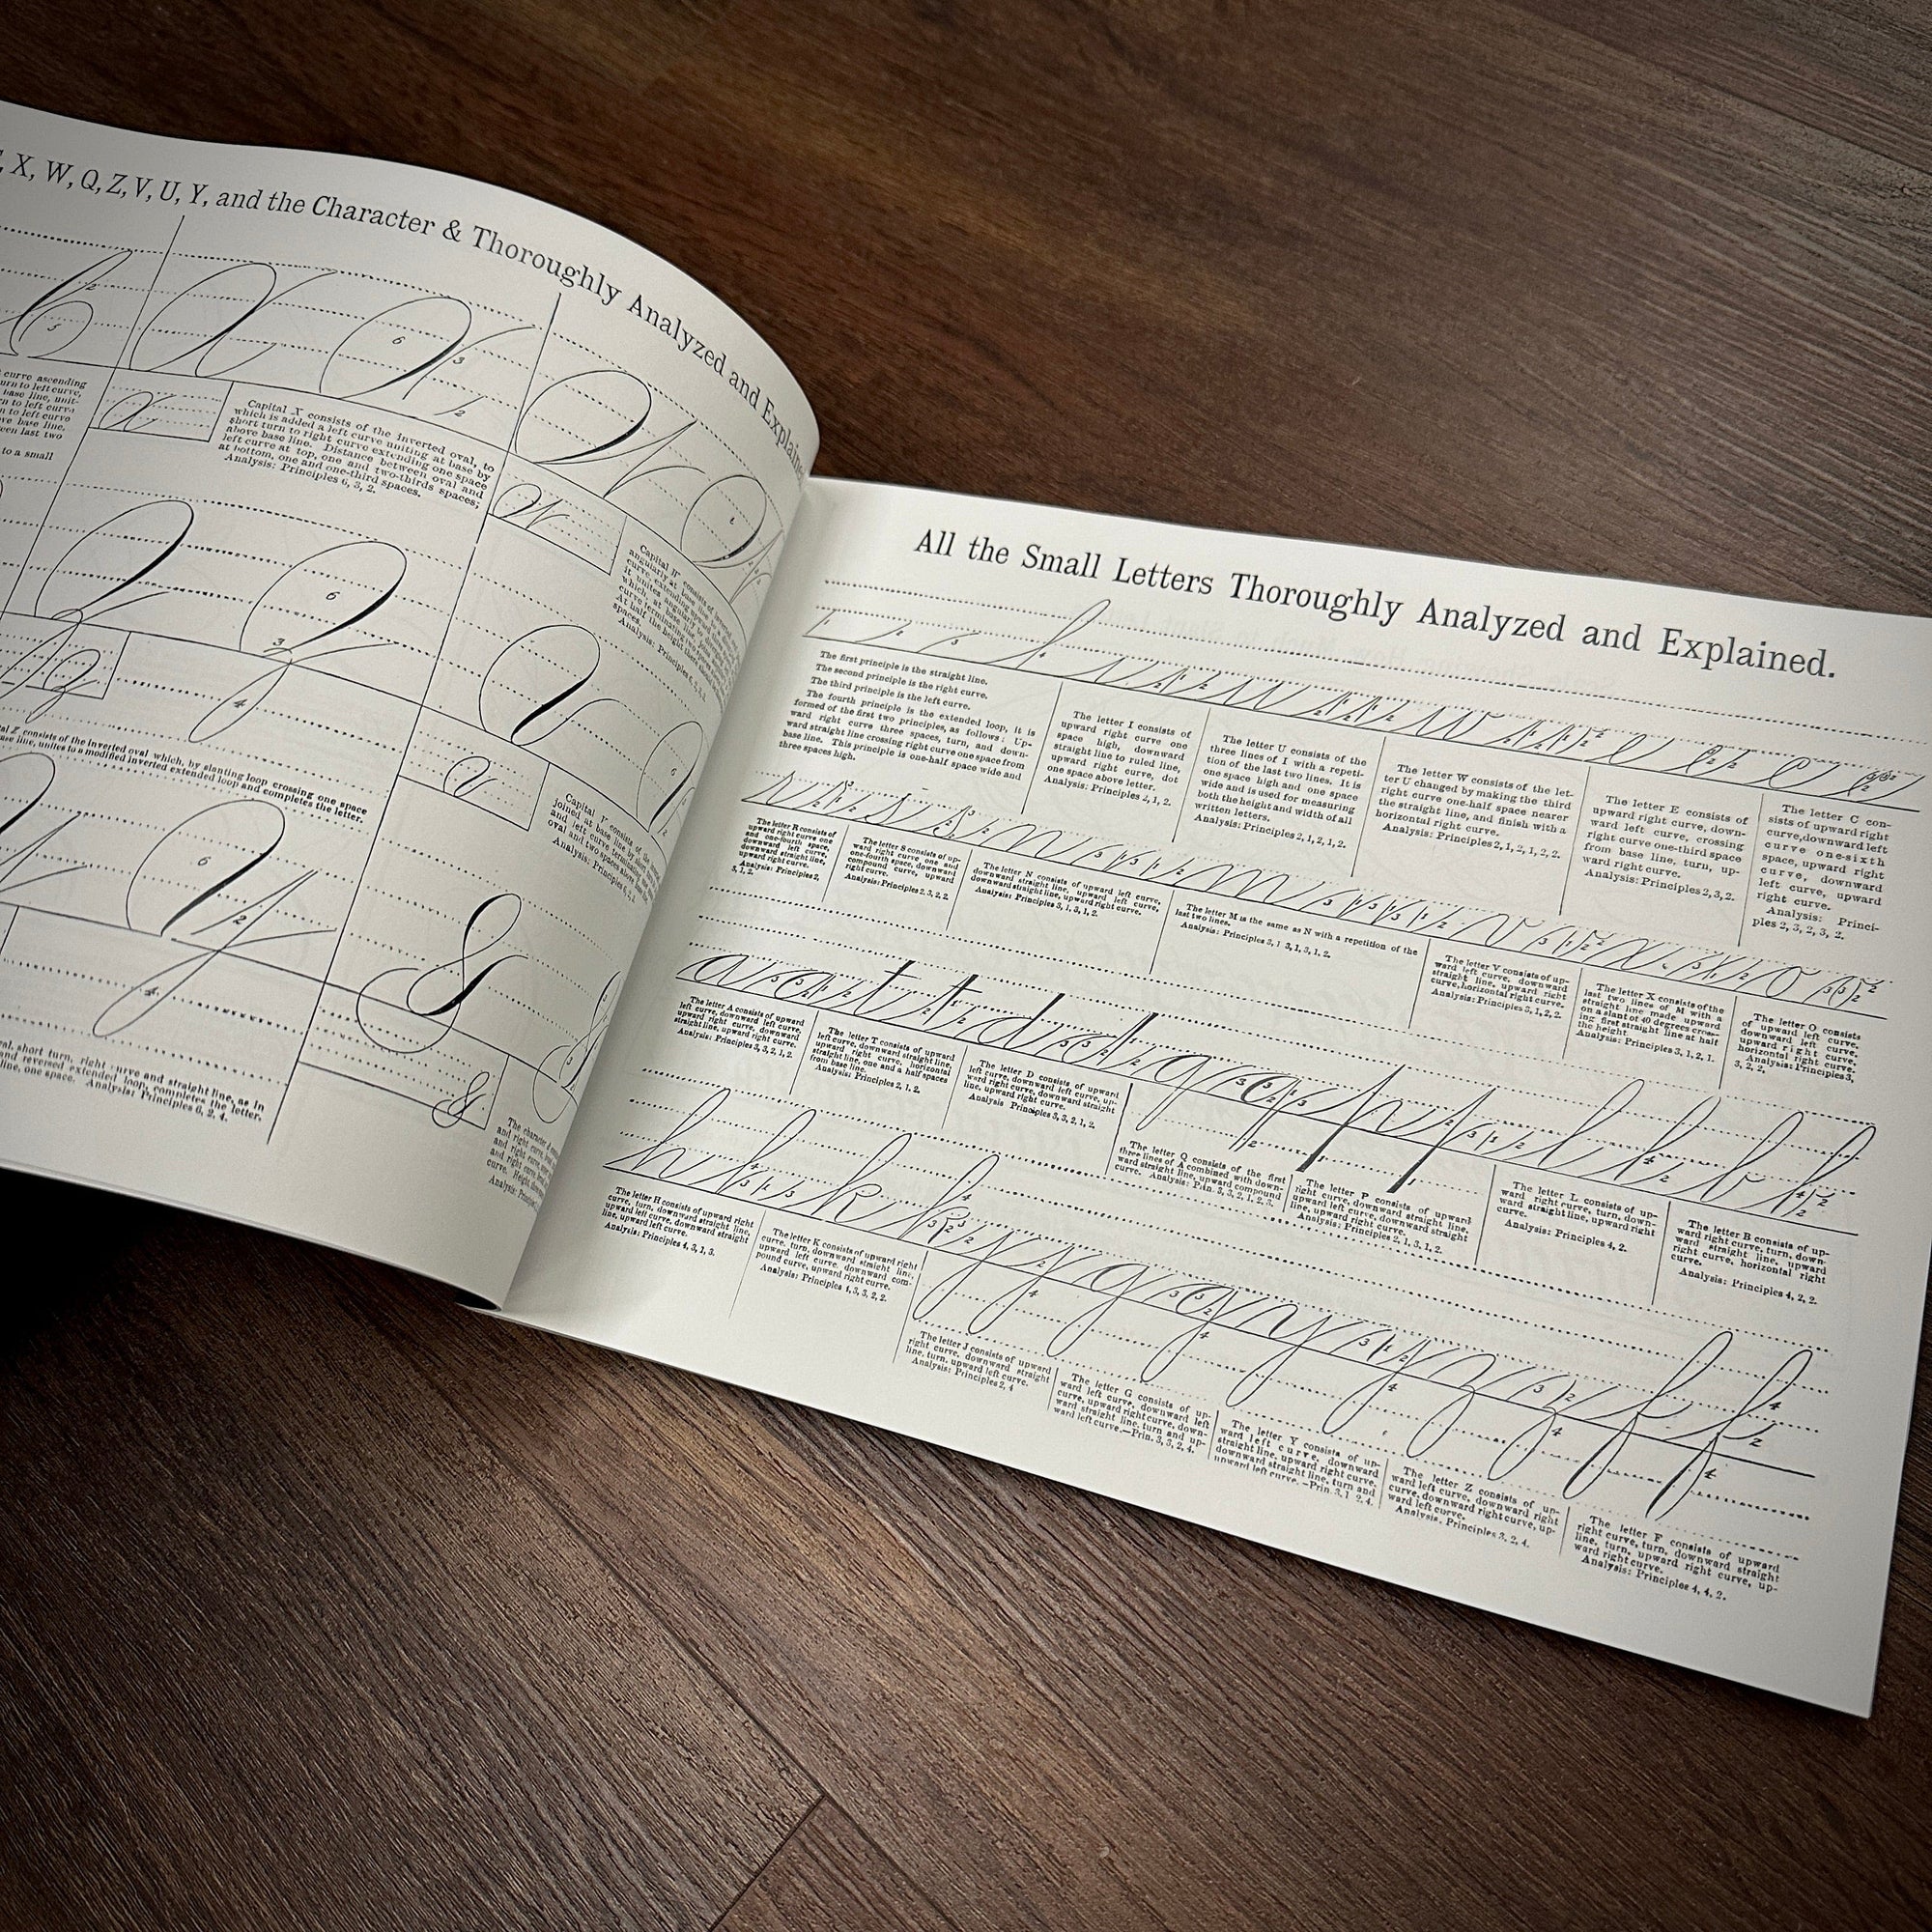 X, W, Q, Z, V, U, Y, and the Character & Thoroughly Analyzed and
curve ascending
turn to left curve,
base line, unit-
to left curve
to left curve
base line.
last two
to a small
Capital X consists of the inverted oval, to
which is added a left curve uniting at base by
short turn to right curve extending one space
above base line. Distance between oval and
left curve at top, one and two-thirds spaces;
at bottom, one and one-third spaces.
Analysis: Principles 6, 3, 2.
Capital W consists of
Z consists of the inverted oval which, by slanting loop crossing one space
line, unites to a modified inverted extended loop and completes the letter.
Capital V consists of
short turn, right curve and straight line, as in
and reversed extended loop, completes the letter.
line, one space. Analysis: Principles 6, 2, 4.
All the Small Letters Thoroughly Analyzed and Explained.
The first principle is the straight line.
The second principle is the right curve.
The third principle is the left curve.
The fourth principle is the extended loop, it is
formed of the first two principles, as follows: Up-
ward right curve three spaces, turn, and down-
ward straight line crossing right curve one space from
base line. This principle is one-half space wide and
three spaces high.
The letter I consists of
upward right curve one
space high, downward
straight line to ruled line,
upward right curve, dot
one space above letter.
Analysis: Principles 2, 1, 2.
The letter U consists of the
three lines of I with a repeti-
tion of the last two lines. It is
one space high and one space
wide and is used for measuring
both the height and width of all
written letters.
Analysis: Principles 2, 1, 2, 1, 2.
The letter W consists of the let-
ter U changed by making the third
right curve one-half space nearer
the straight line, and finish with a
horizontal right curve.
Analysis: Principles 2, 1, 2, 1, 2, 2.
The letter E consists of
upward right curve, down-
ward left curve, crossing
right curve one-third space
from base line, turn, up-
ward right curve.
Analysis: Principles 2, 3, 2.
The letter C con-
sists of upward right
curve, downward left
curve one-sixth
space, upward right
curve, downward
left curve, upward
right curve.
Analysis: Princi-
ples 2, 3, 2, 3, 2.
The letter R consists of
upward right curve one
and one-fourth space,
downward left curve,
downward straight line,
upward right curve.
Analysis: Principles 2,
3, 1, 2.
The letter S consists of up-
ward right curve one and
one-fourth space, downward
compound curve, upward
right curve.
Analysis: Principles 2, 3, 2, 2.
The letter N consists of upward left curve,
downward straight line, upward left curve,
downward straight line, upward right curve.
Analysis: Principles 3, 1, 3, 1, 2.
The letter M is the same as N with a repetition of the
last two lines.
Analysis: Principles 3, 1, 3, 1, 3, 1, 2.
The letter V consists of up-
ward left curve, downward
straight line, upward right
curve, horizontal right curve.
Analysis: Principles 3, 1, 2, 2.
The letter X consists of the
last two lines of M with a
straight line made upward
on a slant of 40 degrees cross-
ing first straight line at half
the height.
Analysis: Principles 3, 1, 2, 1.
The letter O consists
of upward left curve,
downward left curve,
upward right curve,
horizontal right curve.
Analysis: Principles 3,
3, 2, 2.
The letter A consists of upward
left curve, downward left curve,
upward right curve, downward
straight line, upward right curve.
Analysis: Principles 3, 3, 2, 1, 2.
The letter T consists of upward
left curve, downward straight line,
upward right curve, horizontal
straight line, one and a half spaces
from base line.
Analysis: Principles 2, 1, 2.
The letter D consists of upward
left curve, downward left curve, up-
ward right curve, downward straight
line, upward right curve.
Analysis Principles 3, 3, 2, 1, 2.
The letter Q consists of the first
three lines of A combined with down-
ward straight line, upward compound
curve.
Analysis: Prin. 3, 3, 2, 1, 2, 3.
The letter P consists of upward
right curve, downward straight line,
upward left curve, downward straight
line, upward right curve.
Analysis: Principles 2, 1, 3, 1, 2.
The letter L consists of up-
ward right curve, turn, down-
ward straight line, upward right
curve.
Analysis: Principles 4, 2.
The letter B consists of up-
ward right curve, turn, down-
ward straight line, upward
right curve, horizontal right
curve.
Analysis: Principles 4, 2, 2.
The letter H consists of upward right
curve, turn, downward straight line,
upward left curve, downward straight
line, upward left curve.
Analysis: Principles 4, 3, 1, 3.
The letter K consists of upward right
curve, turn, downward straight line,
upward left curve, downward com-
pound curve, upward right curve.
Analysis: Principles 4, 3, 3, 2, 2.
The letter J consists of upward
right curve, downward straight
line, turn, upward left curve.
Analysis: Principles 2, 4
The letter G consists of up-
ward left curve, downward left
curve, upward right curve, down-
ward straight line, turn and up-
ward left curve.—Prin. 3, 3, 2, 4.
The letter Y consists of up-
ward left curve, downward
straight line, upward right curve,
downward straight line, turn and
upward left curve.—Prin. 3, 1 2, 4.
The letter Z consists of up-
ward left curve, downward right
curve, downward right curve, up-
ward left curve.
Analysis. Principles 3, 2, 4.
The letter F consists of upward
right curve, turn, downward straight
line, turn, upward right curve, up-
ward right curve.
Analysis: Principles 4, 4, 2.